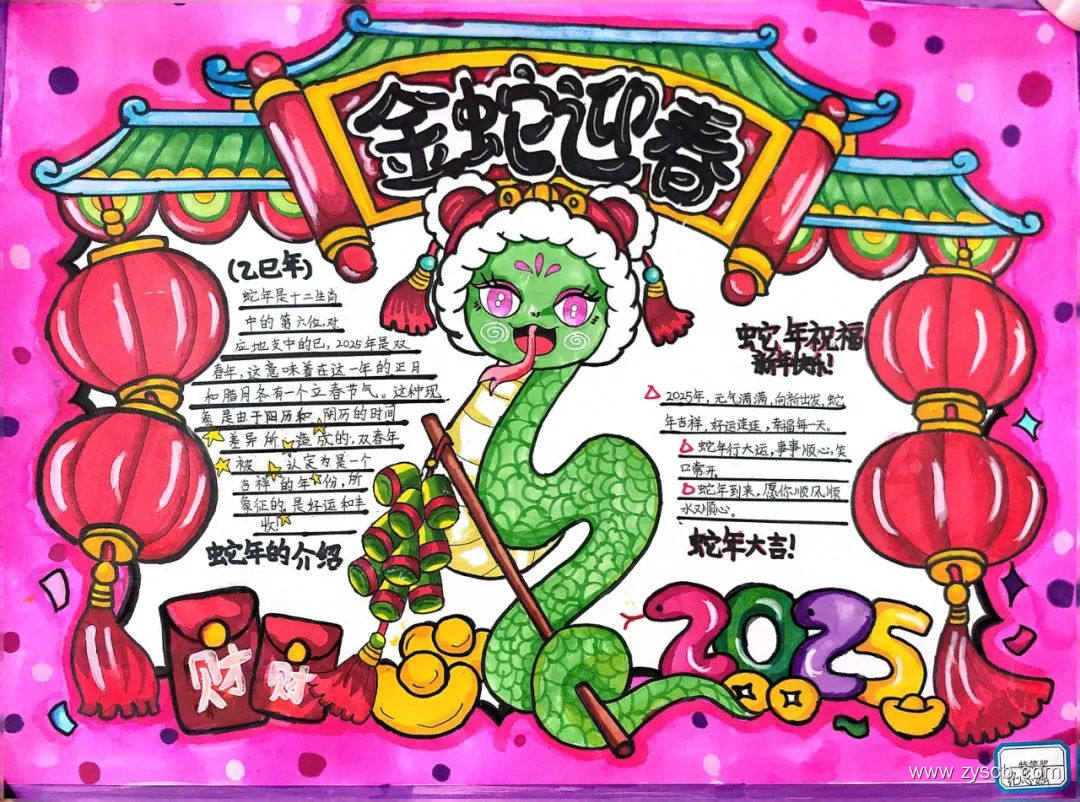 金蛇迎春
(乙巳年)
蛇年是十二生肖
中的第六位,对
应地支中的巳,2025年是双
春年,这意味着在这一年的正月
和腊月各有一个立春节气。这种现
象是由于阳历和阴历的时间
差异所造成的,双春年
被认定为是一个
吉祥的年份,所
象征的是好运和丰
收!
蛇年的介绍
蛇年祝福
新年快乐!
2025年,元气满满,向新出发,蛇
年吉祥,好运连连,幸福每一天。
蛇年行大运,事事顺心,笑
口常开
蛇年到来,愿你顺风顺
水又顺心。
蛇年大吉!
财
财
2025
www.zyscb.com